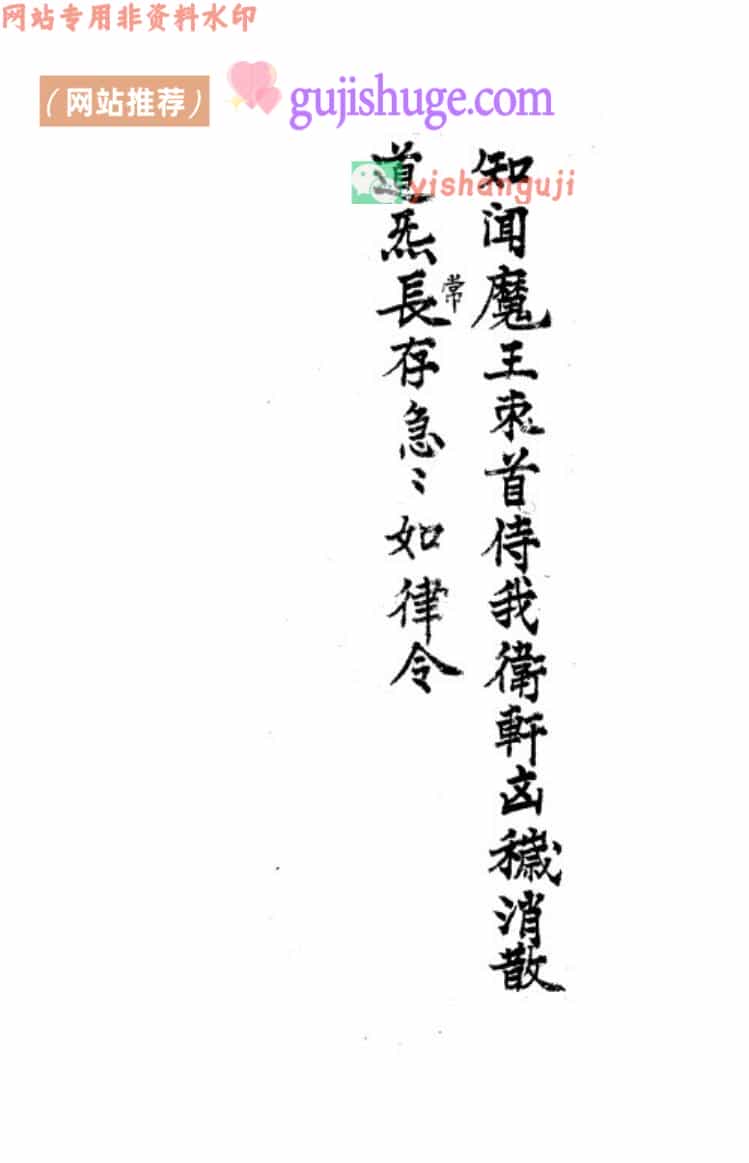 网站专用非资料水印
（网站推荐） gujishuge.com
yishanguji
知闻魔王束首侍我衛軒凶穢消散
道炁長存急〻如律令
常